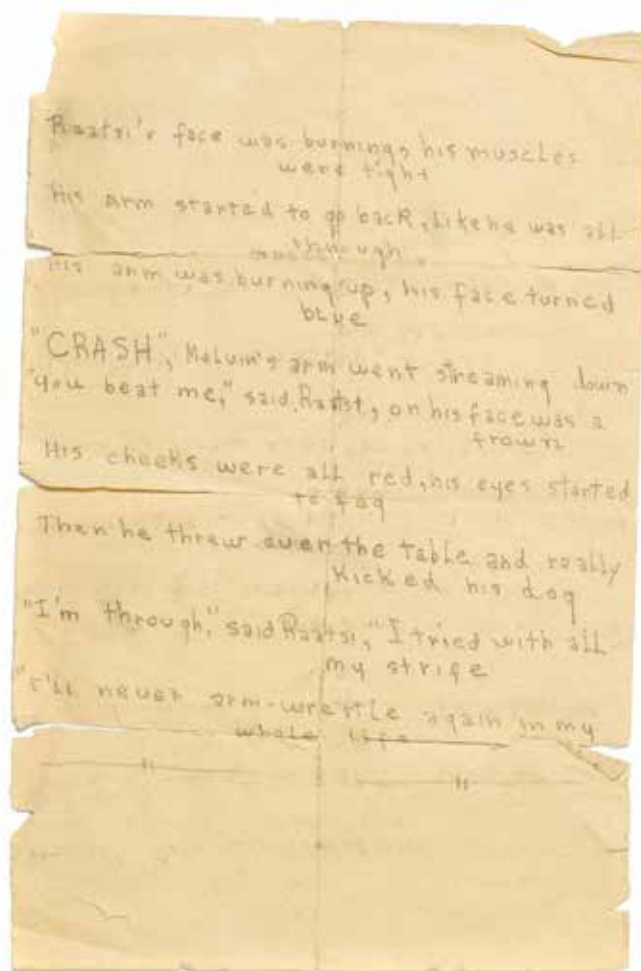 Raatsi's face was burning, his muscles
were tight
His arm started to go back, Like he was all
through.
His arm was burning up, his face turned
blue
"CRASH", Melvin's arm went streaming down
"You beat me," said Raatsi, on his face was a
frown
His cheeks were all red, his eyes started
to fog
Then he threw over the table and really
kicked his dog
"I'm through," said Raatsi, "I tried with all
my strife
"I'll never arm-wrestle again in my
whole life